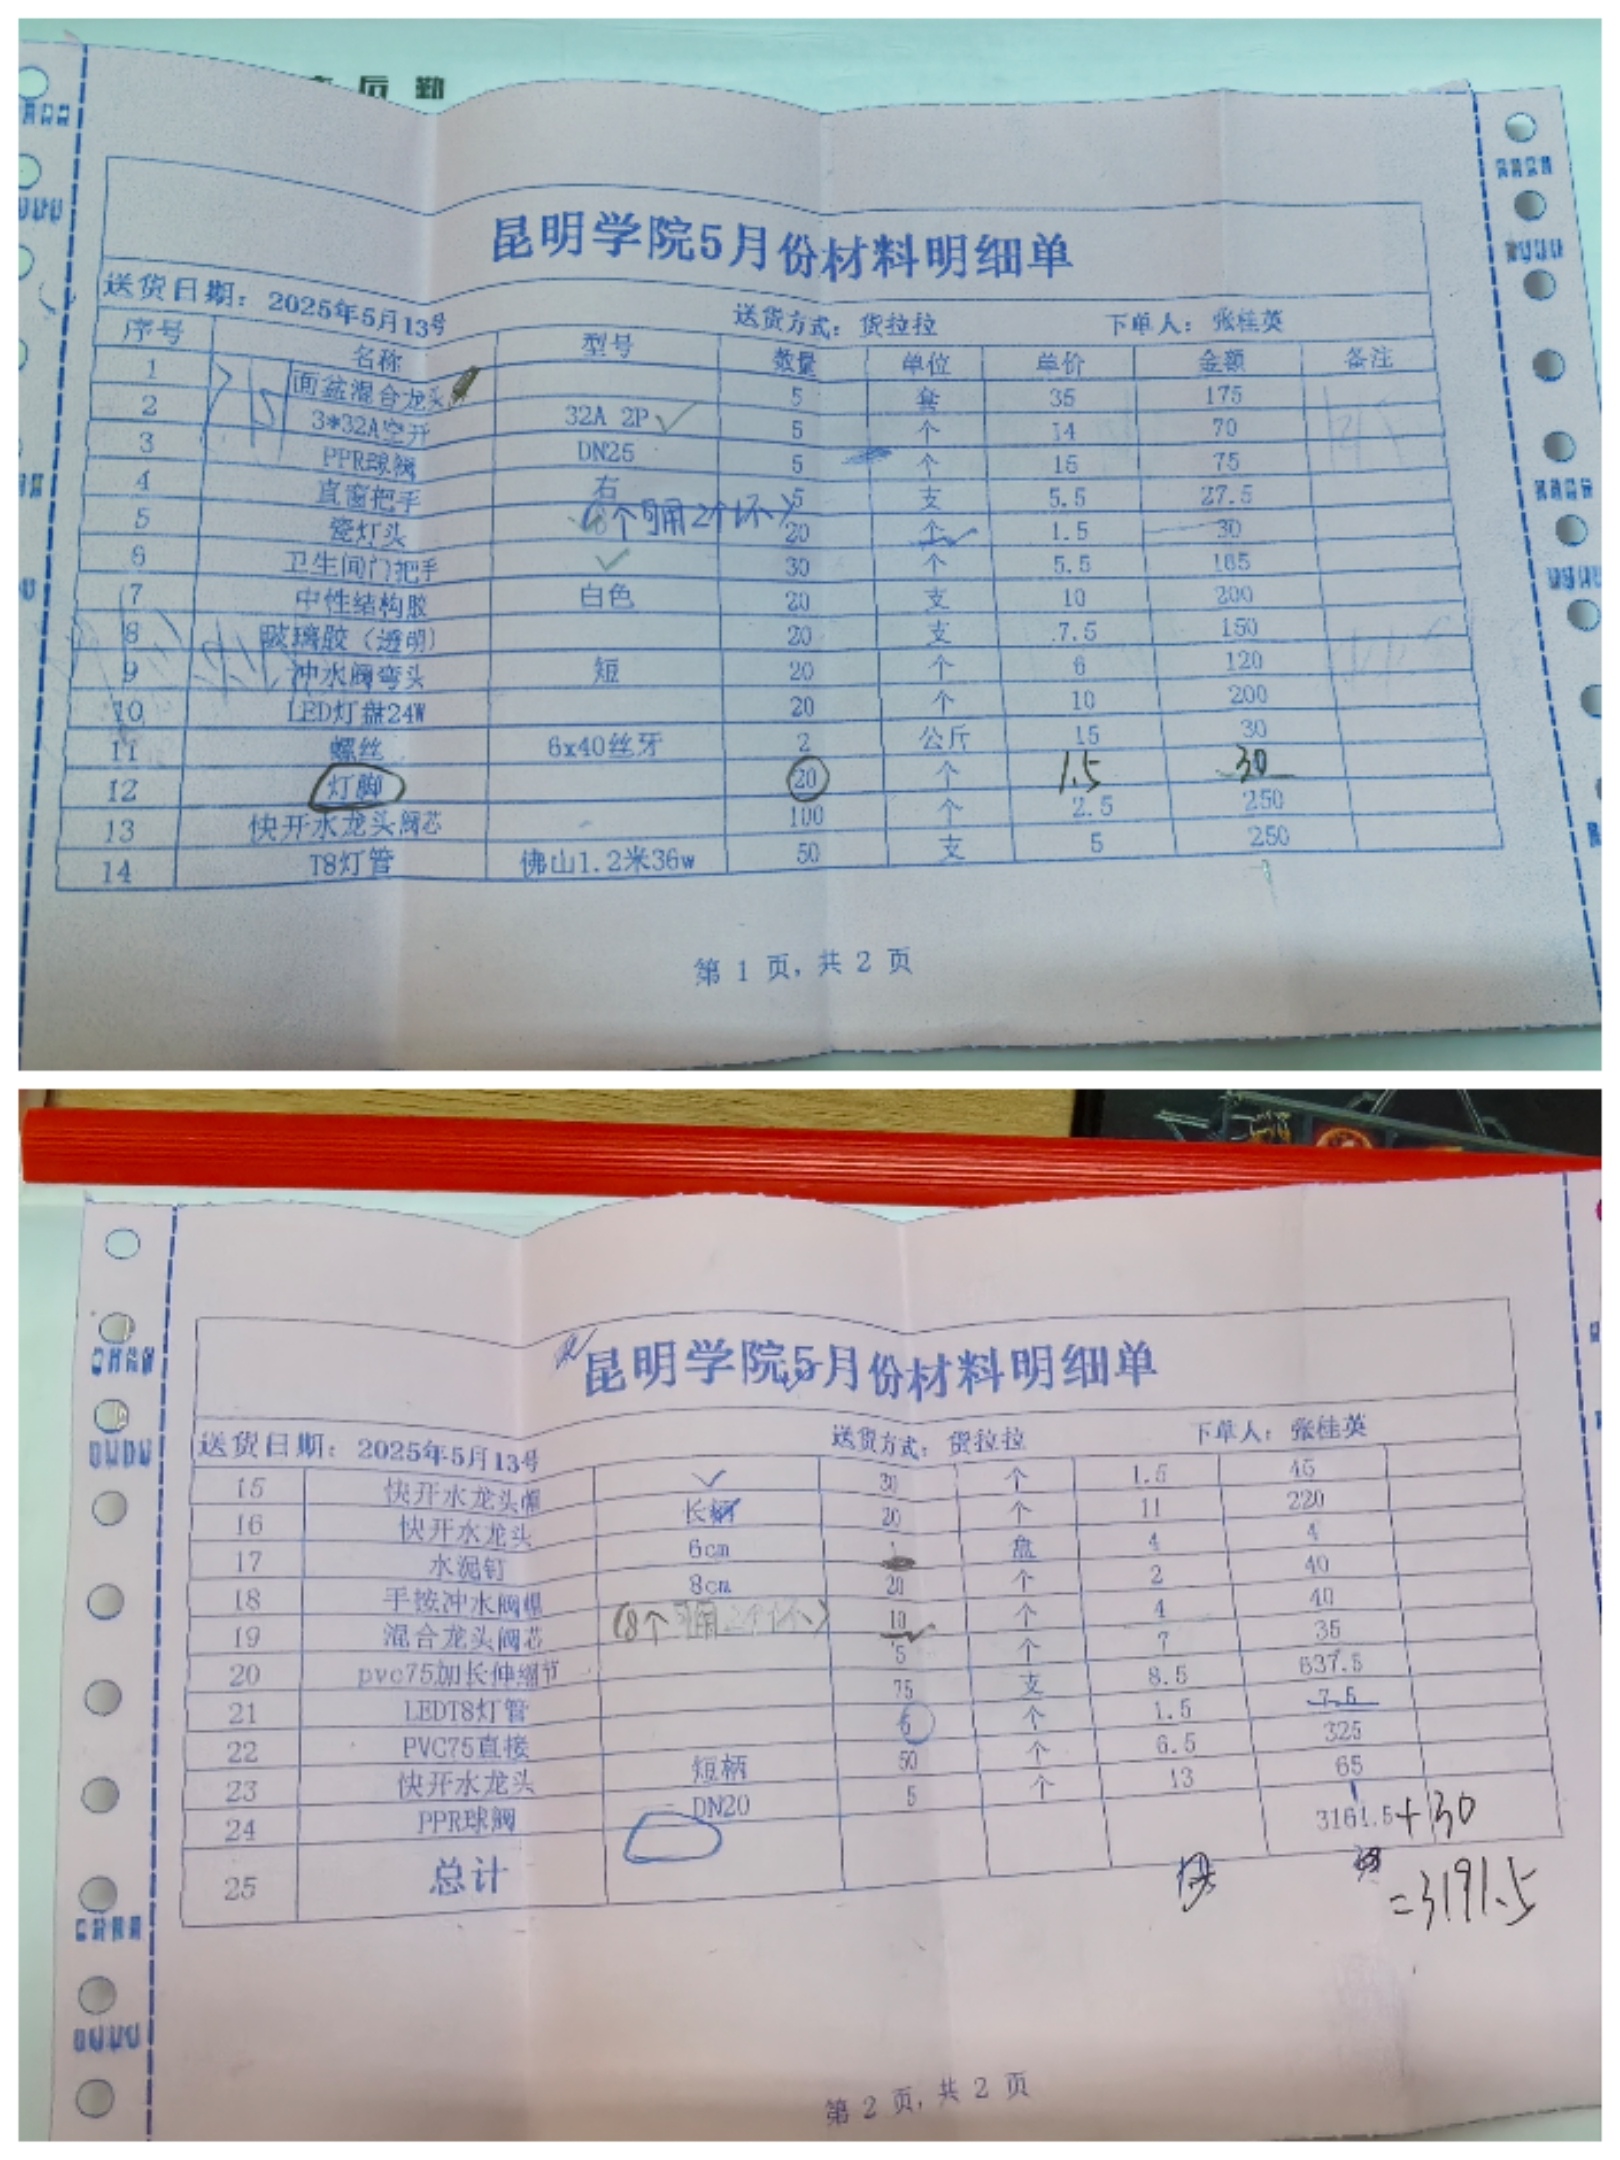 后 勤
昆明学院5月份材料明细单
送货日期：2025年5月13号 送货方式：货拉拉 下单人：张桂英
序号 名称 型号 数量 单位 单价 金额 备注
1 面盆混合龙头 5 套 35 175
2 3*32A空开 32A 2P ✓ 5 个 14 70
3 PPR球阀 DN25 5 个 15 75
4 直窗把手 右 5 支 5.5 27.5
5 瓷灯头 20 个 1.5 30
6 卫生间门把手 ✓ 30 个 5.5 165
7 中性结构胶 白色 20 支 10 200
8 玻璃胶（透明） 20 支 7.5 150
9 冲水阀弯头 短 20 个 6 120
10 LED灯盘24W 20 个 10 200
11 螺丝 6x40丝牙 2 公斤 15 30
12 灯脚 20 个 1.5 30
13 快开水龙头阀芯 100 个 2.5 250
14 T8灯管 佛山1.2米36w 50 支 5 250
第 1 页，共 2 页
昆明学院5月份材料明细单
送货日期：2025年5月13号 送货方式：货拉拉 下单人：张桂英
15 快开水龙头帽 ✓ 30 个 1.5 45
16 快开水龙头 长柄 20 个 11 220
17 水泥钉 6cm 盘 4 4
18 手按冲水阀帽 8cm 20 个 2 40
19 混合龙头阀芯 (8个可用2个坏) 10 个 4 40
20 pvc75加长伸缩节 5 个 7 35
21 LEDT8灯管 75 支 8.5 637.5
22 PVC75直接 个 1.5 7.5
23 快开水龙头 短柄 50 个 6.5 325
24 PPR球阀 DN20 5 个 13 65
25 总计 3161.5+30
=3191.5
第 2 页，共 2 页